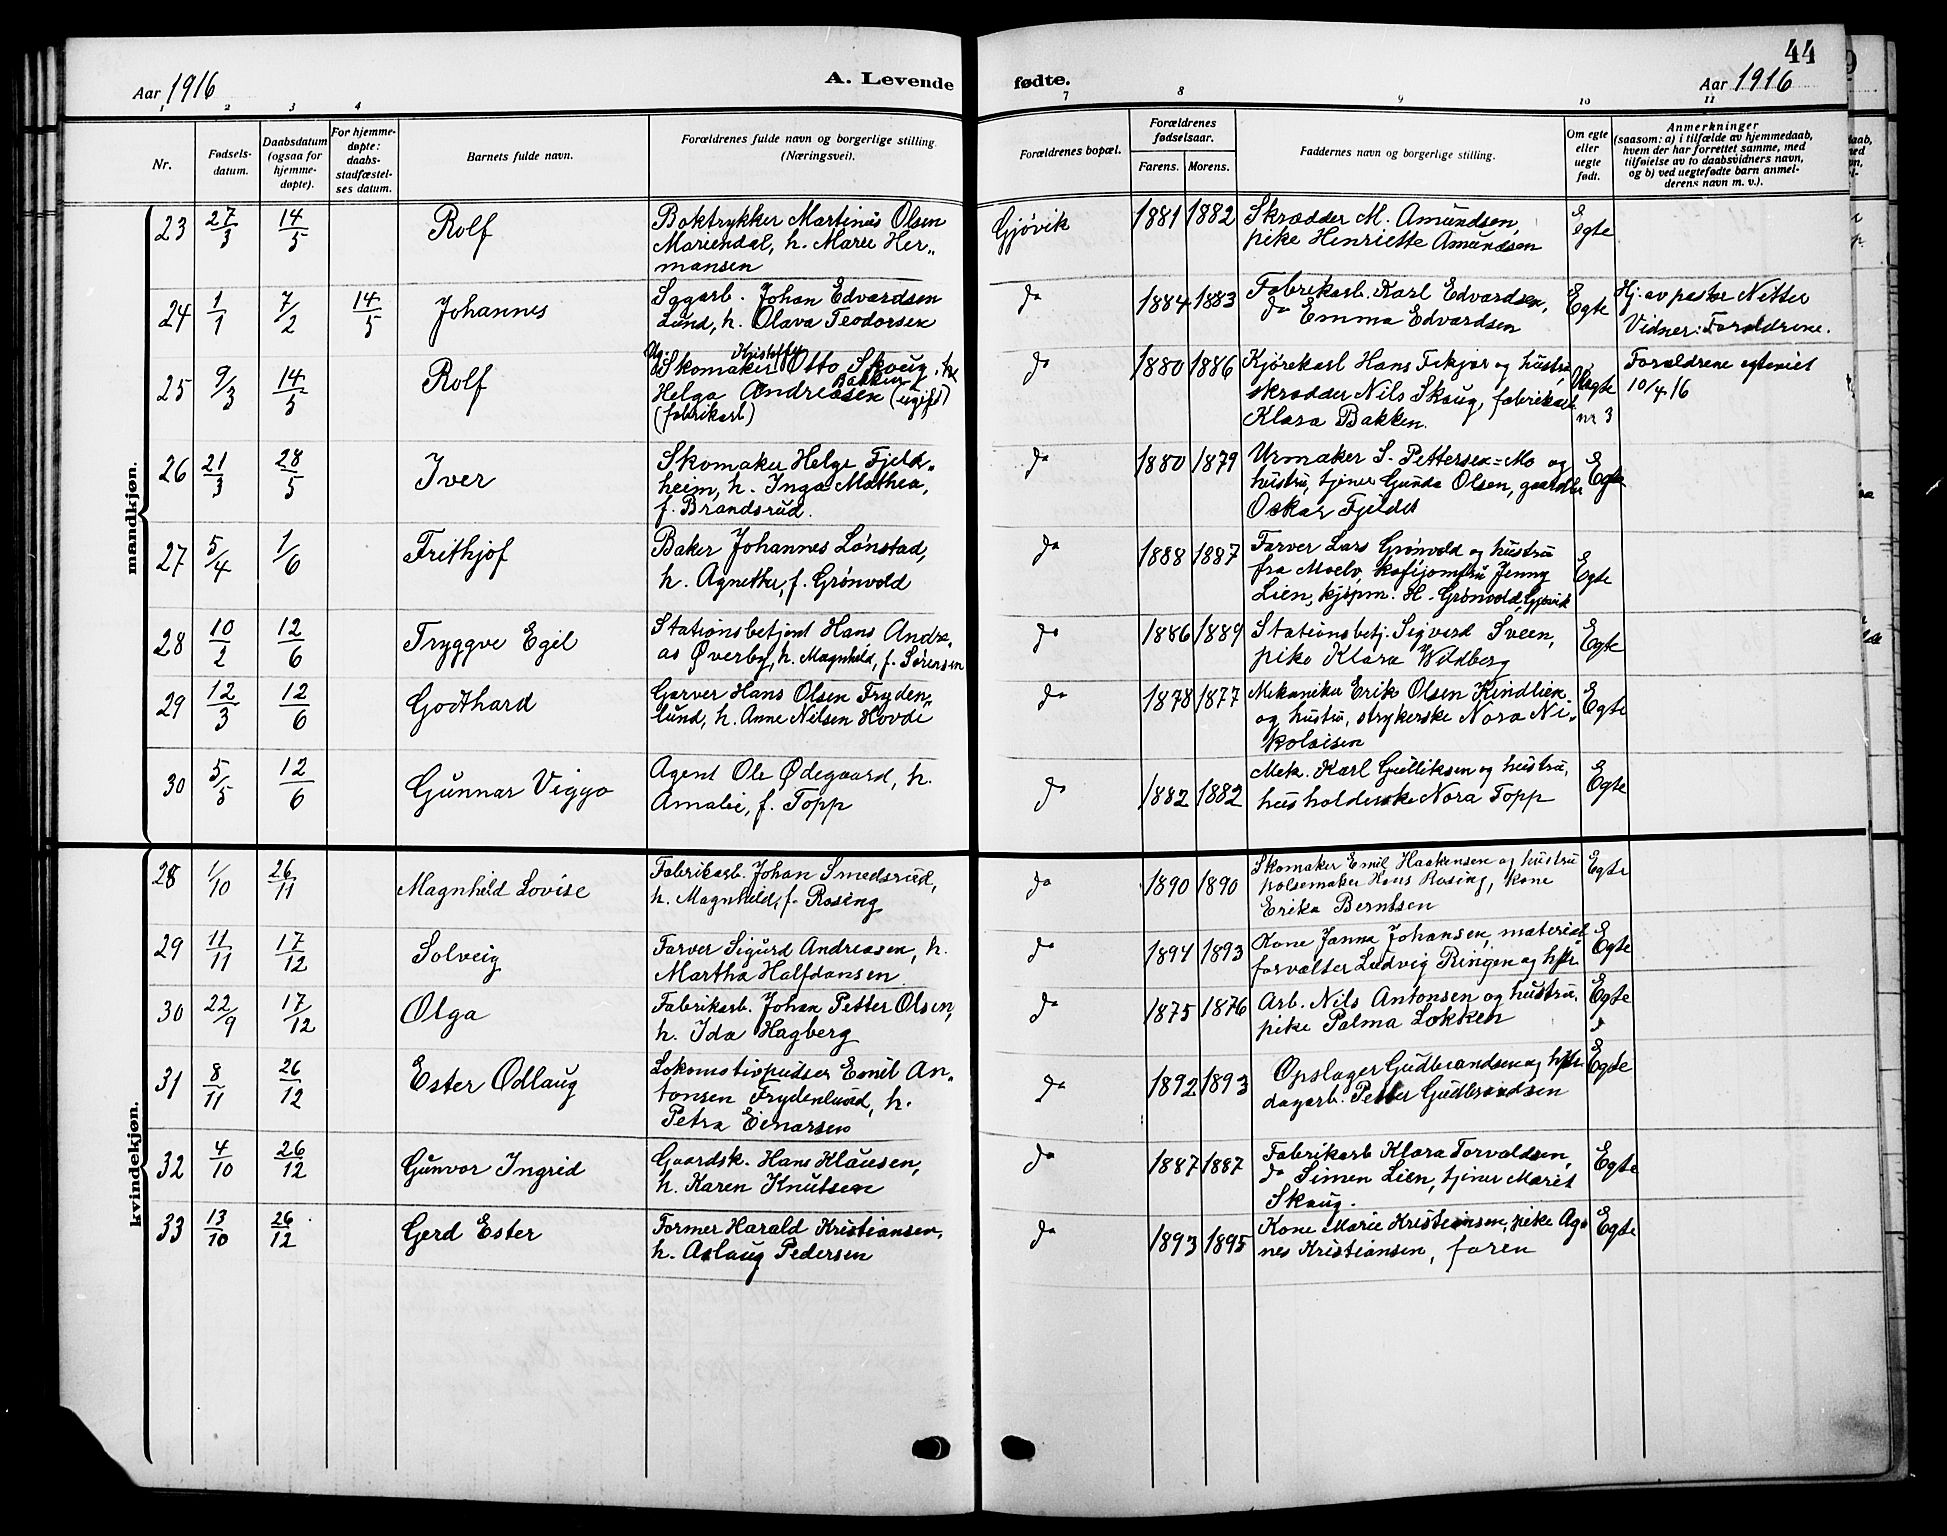 44
Aar 1916
A. Levende fødte.
Aar 1916
1 2 3 4 7 8 9 10 11
Nr.
Fødsels-
datum.
Daabsdatum
(ogsaa for
hjemme-
døpte).
For hjemme-
døpte:
daabs-
stadfæstel-
ses datum.
Barnets fulde navn.
Forældrenes fulde navn og borgerlige stilling
(Næringsvei).
Forældrenes bopæl.
Forældrenes
fødselsaar.
Farens. Morens.
Faddernes navn og borgerlige stilling.
Om egte
eller
uegte
født.
Anmerkninger
(saasom: a) i tilfælde av hjemmedaab,
hvem der har forrettet samme, med
tilføielse av to daabsvidners navn,
og b) ved uegtefødte barn anmel-
derens navn m. v.).
mandkjøn.
23 27/3 14/5 Rolf
Boktrykker Martinus Olsen
Mariendal, h. Marie Her-
mansen
Gjøvik 1881 1882
Skrædder M. Amundsen,
pike Henriette Amundsen
Egte
24 1/1 7/2 14/5 Johannes
Sagarb. Johan Edvardsen
Lund, h. Olava Teodorsen
do 1884 1883
Fabrikarb. Karl Edvardsen,
do Emma Edvardsen
Egte
Hj. av pastor Nitter
Vidner: Forældrene.
25 9/3 14/5 Rolf
Skomaker Otto Skaug
Helga Andreasen Bakken (ugift)
(fabrikarb)
do 1880 1886
Kjørekarl Hans Fekjær og hustru
skrædder Nils Skaug, fabrikarb
Klara Bakken.
Uegte
nr 3
Forældrene egteviet
10/4 16
26 21/3 28/5 Iver
Skomaker Helge Fjeld-
heim, h. Inga Mathea,
f. Brandsrud.
do 1880 1879
Urmaker S. Pettersen=Mo og
hustru, tjener Gunda Olsen, gaardbr
Oskar Fjeldet
Egte
27 5/4 1/6 Frithjof
Baker Johannes Lønstad,
h. Agnethe, f. Grønvold
do 1888 1887
Farver Lars Grønvold og hustru
fra Moelv, kafijomfru Jenny
Lien, kjøpm. H. Grønvold, Gjøvik
Egte
28 10/2 12/6 Tryggve Egil
Stationsbetjent Hans Andre-
as Øverby, h. Magnhild, f. Sørensen
do 1886 1889
Stationsbetj. Sigverd Sveen,
pike Klara Wildberg
Egte
29 12/3 12/6 Godthard
Garver Hans Olsen Fryden-
lund, h. Anne Nilsen Hovde
do 1878 1877
Mekaniker Erik Olsen Kindlien
og hustru, strykerske Nora Ni-
kolaisen
Egte
30 5/5 12/6 Gunnar Viggo
Agent Ole Ødegaard, h.
Amalie, f. Topp
do 1882 1882
Mek. Karl Gulliksen og hustru,
husholderske Nora Topp
Egte
kvindekjøn.
28 1/10 26/11 Magnhild Lovise
Fabrikarb. Johan Smedsrud,
h. Magnhild, f. Rosing
do 1890 1890
Skomaker Emil Haakensen og hustru
pølsemaker Hans Rosing, kone
Erika Berntsen
Egte
29 11/11 17/12 Solveig
Farver Sigurd Andreasen, h.
Martha Halfdansen
do 1894 1893
Kone Janna Johansen, material
forvalter Ludvig Ringen og hstr.
Egte
30 22/9 17/12 Olga
Fabrikarb. Johan Petter Olsen,
h. Ida Hagberg
do 1875 1876
Arb. Nils Antonsen og hustru,
pike Palma Løkken
Egte
31 8/11 26/12 Ester Odlaug
Lokomotivpudser Emil An-
tonsen Frydenlund, h.
Petra Einarsen
do 1892 1893
Opslager Gudbrandsen og hstr
dagarb. Petter Gudbrandsen
Egte
32 4/10 26/12 Gunvor Ingrid
Gaardsk. Hans Klausen,
h. Karen Knutsen
do 1887 1887
Fabrikarb Klara Torvaldsen,
do Simen Lien, tjener Marit
Skaug.
Egte
33 13/10 26/12 Gerd Ester
Former Harald Kristiansen,
h. Aslaug Pedersen
do 1893 1895
Kone Marie Kristiansen, pike Ag-
nes Kristiansen, faren
Egte